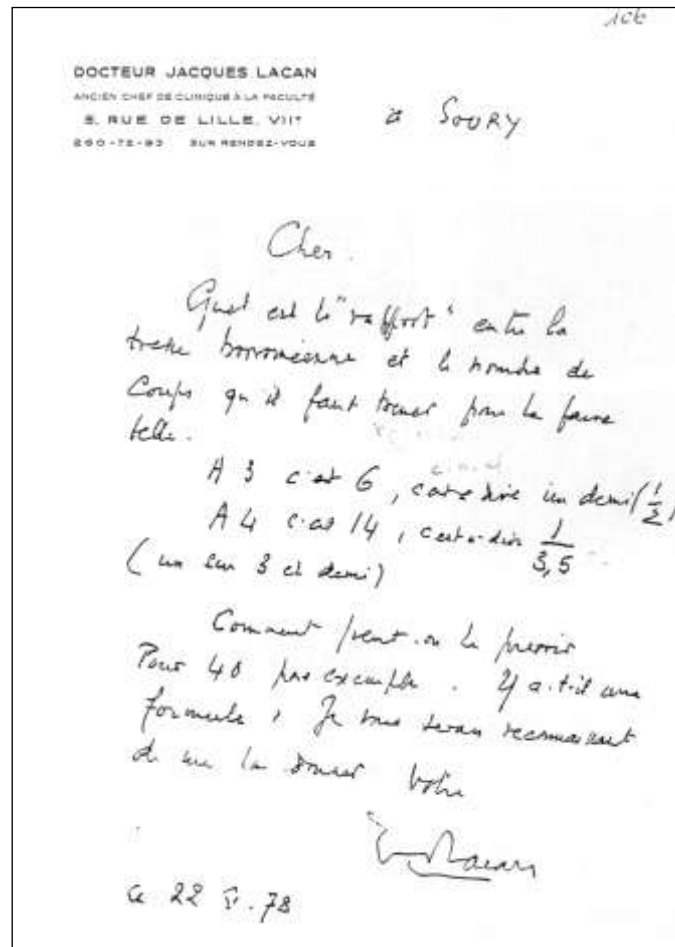 106
DOCTEUR JACQUES LACAN
ANCIEN CHEF DE CLINIQUE À LA FACULTÉ
5, RUE DE LILLE. VIIe
260-72-93 SUR RENDEZ-VOUS
a SOURY
Cher.
Quel est le "rapport" entre la
tresse borroméenne et le nombre de
Coups qu'il faut tresser pour la faire
telle.
A 3 c'est 6, c'est à dire un demi (1/2)
A 4 c'est 14, c'est-à-dire 1/3,5
(un sur 3 et demi)
Comment peut-on le prévoir
Pour 40 par exemple. Y a-t-il une
formule, Je vous serais reconnaissant
de me la donner Votre
Lacan
Ce 22 V.78